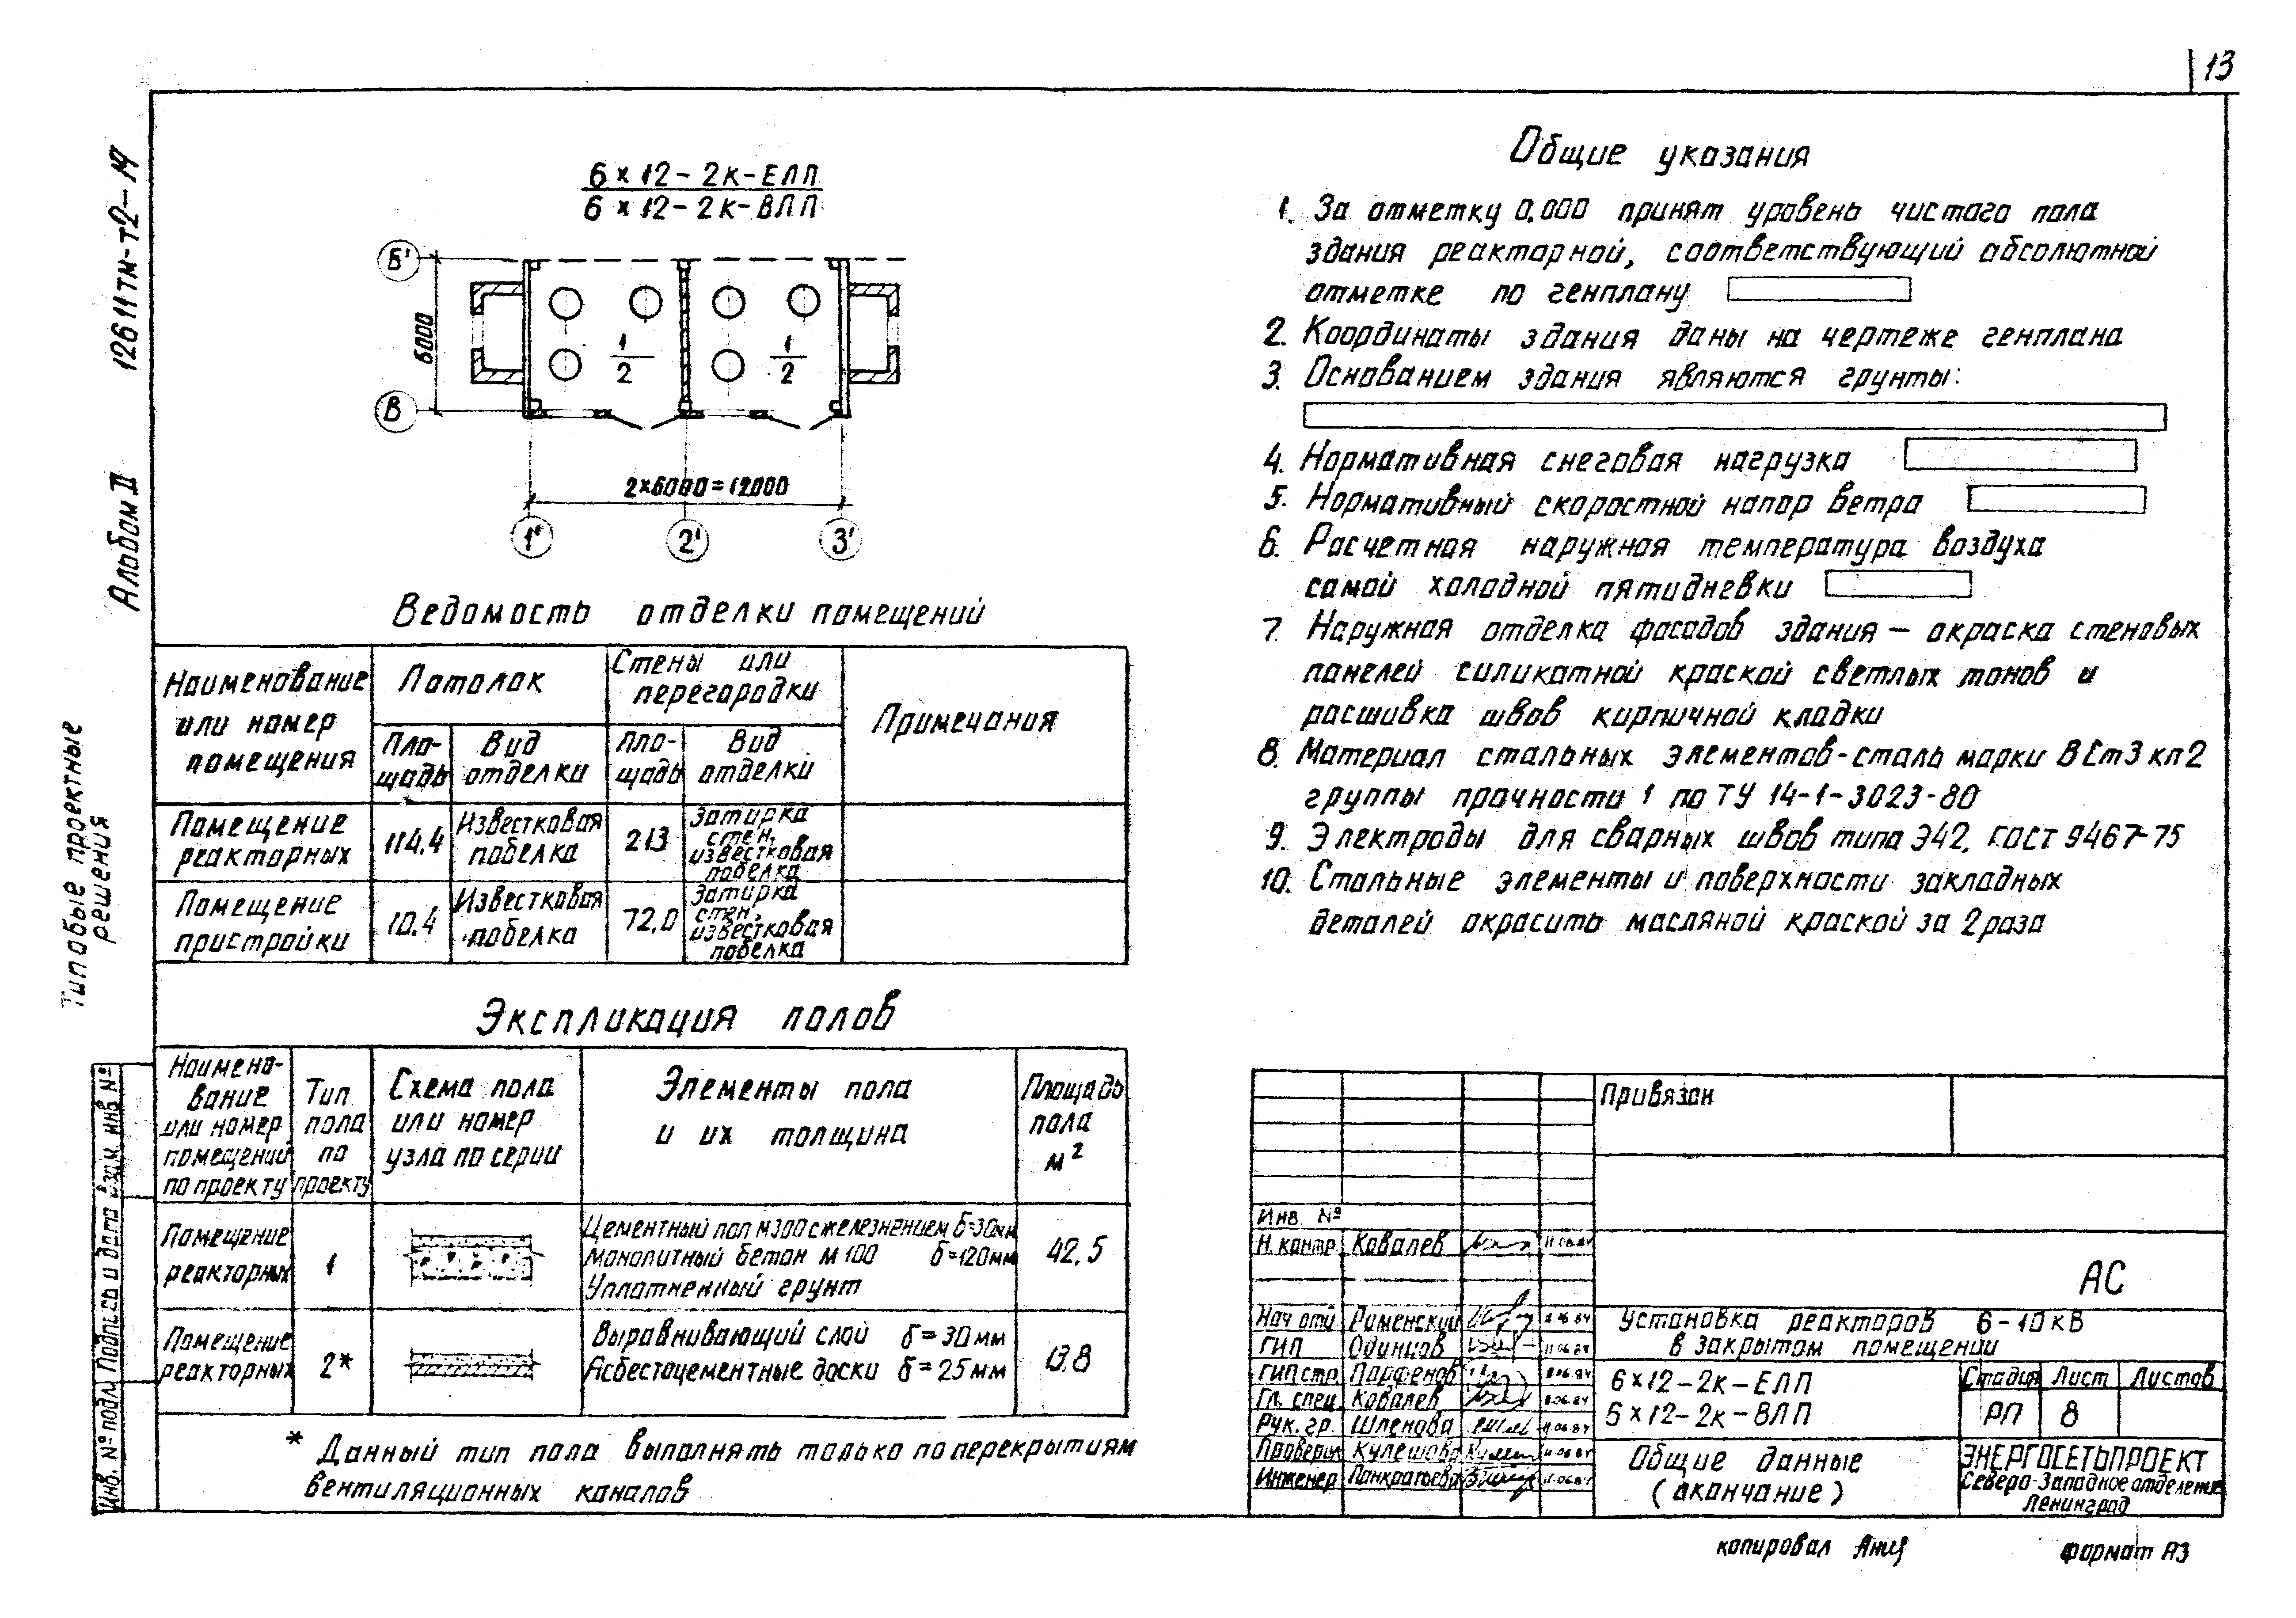 13
12611тм-т2-14
Альбом II
Типовые проектные
решения
Инв. № подл. Подпись и дата Взам. инв. №
6×12-2к-ЕЛП
6×12-2к-ВЛП
Б'
В
6000
1
2
1
2
2×6000=12000
1'
2'
3'
Ведомость отделки помещений
Наименование
или номер
помещения
Потолок
Стены или
перегородки
Примечания
Пло-
щадь
Вид
отделки
Пло-
щадь
Вид
отделки
Помещение
реакторных
114.4
Известковая
побелка
213
Затирка
стен,
известковая
побелка
Помещение
пристройки
10.4
Известковая
побелка
72.0
Затирка
стен,
известковая
побелка
Экспликация полов
Наимено-
вание
или номер
помещений
по проекту
Тип
пола
по
проекту
Схема пола
или номер
узла по серии
Элементы пола
и их толщина
Площадь
пола
м²
Помещение
реакторных
1
Цементный пол М300 с железнением δ=30мм
Монолитный бетон М100 δ=120мм
Уплотненный грунт
42.5
Помещение
реакторных
2*
Выравнивающий слой δ=30мм
Асбестоцементные доски δ=25мм
13.8
* Данный тип пола выполнять только по перекрытиям
вентиляционных каналов
Общие указания
1. За отметку 0.000 принят уровень чистого пола
здания реакторной, соответствующий абсолютной
отметке по генплану
2. Координаты здания даны на чертеже генплана
3. Основанием здания являются грунты:
4. Нормативная снеговая нагрузка
5. Нормативный скоростной напор ветра
6. Расчетная наружная температура воздуха
самой холодной пятидневки
7. Наружная отделка фасадов здания — окраска стеновых
панелей силикатной краской светлых тонов и
расшивка швов кирпичной кладки
8. Материал стальных элементов-сталь марки ВСт3кп2
группы прочности 1 по ТУ 14-1-3023-80
9. Электроды для сварных швов типа Э42, ГОСТ 9467-75
10. Стальные элементы и поверхности закладных
деталей окрасить масляной краской за 2 раза
Привязан
Инв. №
Н. контр. Ковалев 11.06.84
АС
Нач. отд. Роменский 11.06.84
ГИП Одинцов 11.06.84
ГИП стр. Парфенов 11.06.84
Гл. спец. Ковалев 11.06.84
Рук. гр. Шленова 11.06.84
Проверил Кулешова 11.06.84
Инженер Панкратьева 11.06.84
Установка реакторов 6-10кВ
в закрытом помещении
6×12-2к-ЕЛП
6×12-2к-ВЛП
Стадия Лист Листов
РП 8
Общие данные
(окончание)
ЭНЕРГОСЕТЬПРОЕКТ
Северо-Западное отделение
Ленинград
копировал
формат А3